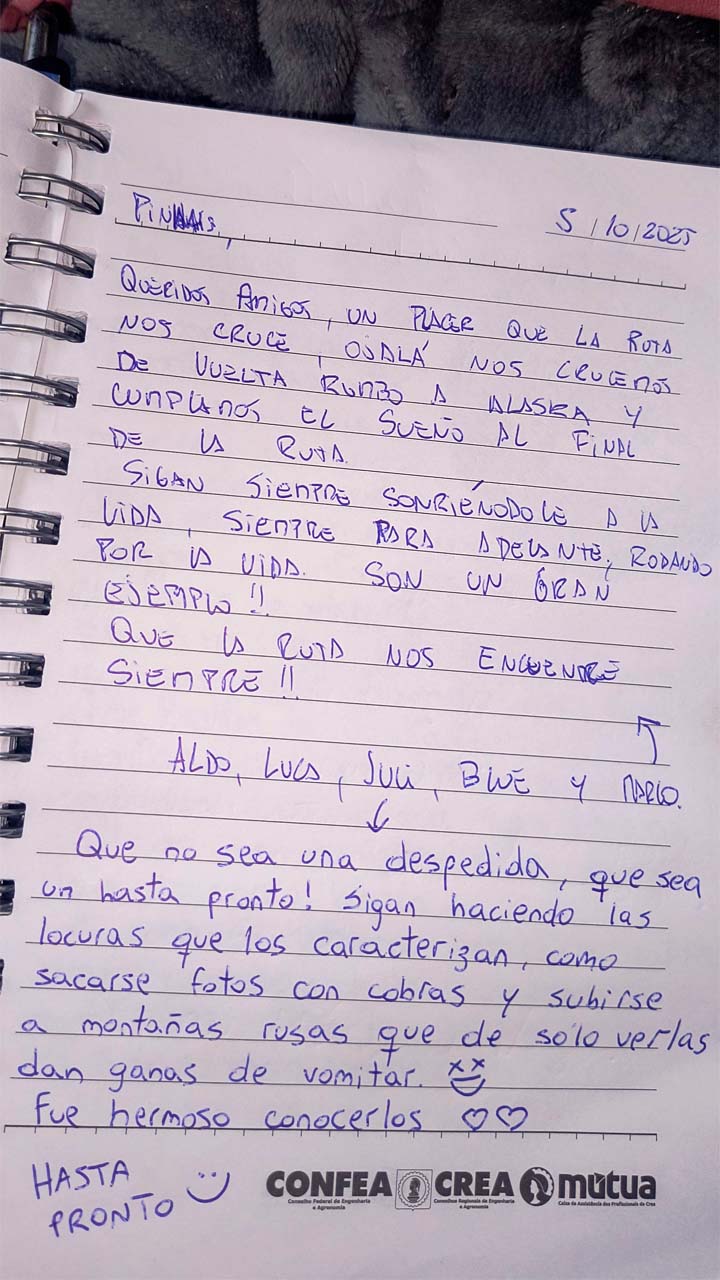 PINHAIS, 5/10/2025
QUERIDOS AMIGOS, UN PLACER QUE LA RUTA
NOS CRUCE, OJALÁ NOS CRUCEMOS
DE VUELTA RUMBO A ALASKA Y
CUMPLAMOS EL SUEÑO AL FINAL
DE LA RUTA.
SIGAN SIEMPRE SONRIÉNDOLE A LA
VIDA, SIEMPRE PARA ADELANTE, RODANDO
POR LA VIDA. SON UN GRAN
EJEMPLO!!
QUE LA RUTA NOS ENCUENTRE
SIEMPRE!!
ALDO, LUCA, JULI, BWE Y MARCO.
Que no sea una despedida, que sea
un hasta pronto! Sigan haciendo las
locuras que los caracterizan, como
sacarse fotos con cobras y subirse
a montañas rusas que de solo verlas
dan ganas de vomitar.
Fue hermoso conocerlos ♡♡
HASTA
PRONTO
CONFEA CREA mútua
Conselho Federal de Engenharia e Agronomia
Conselhos Regionais de Engenharia e Agronomia
Caixa de Assistência dos Profissionais do Crea